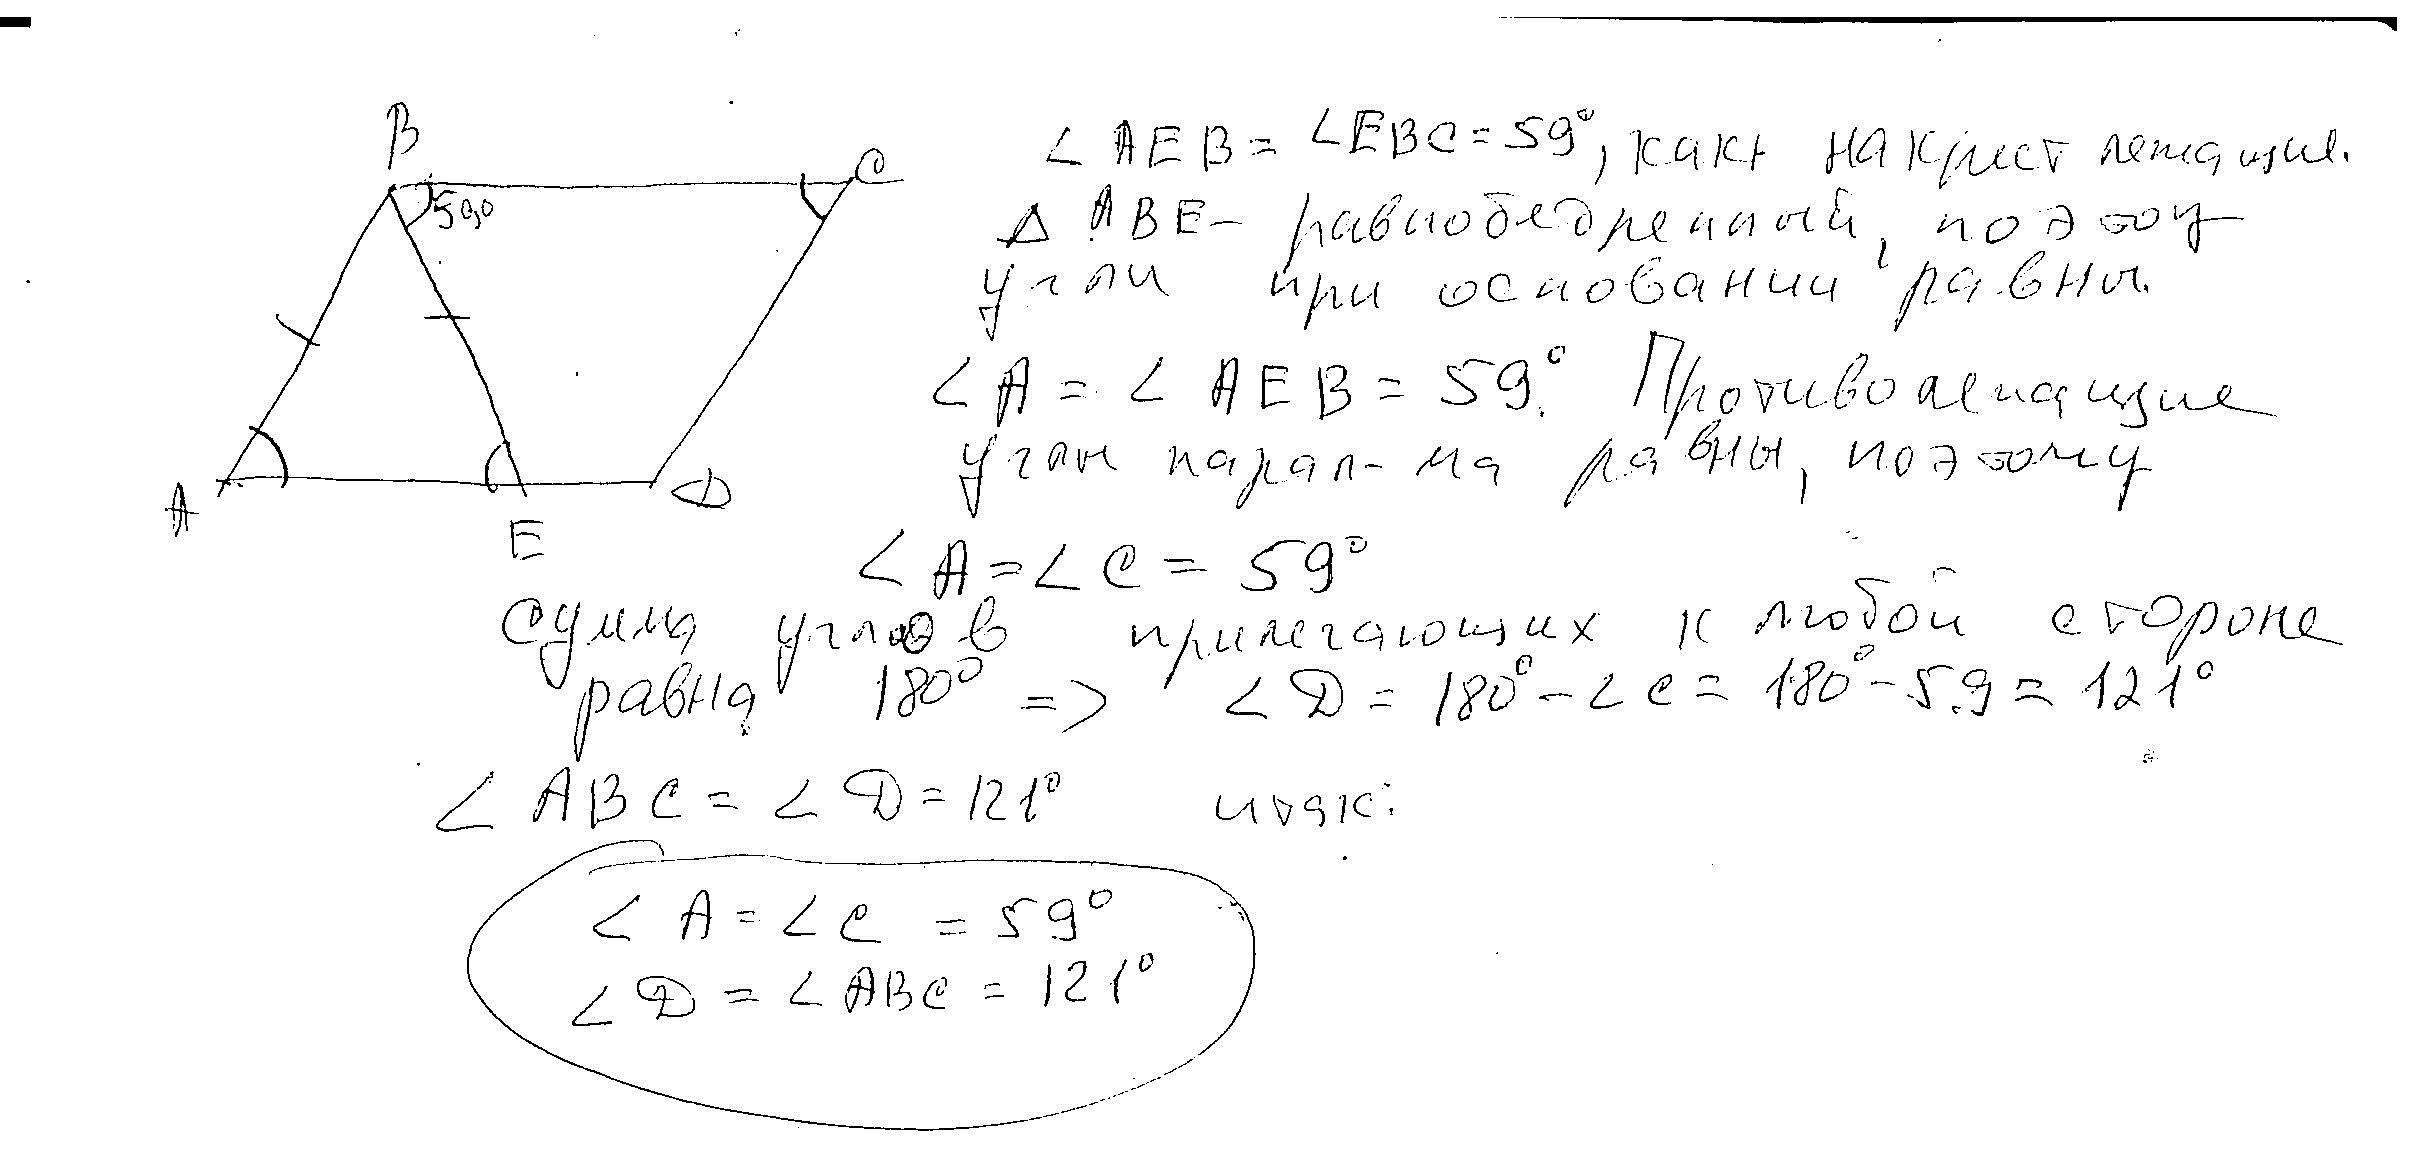 B
C
59°
A
E
D
∠AEB = ∠EBC = 59°, как накрест лежащие.
Δ ABE – равнобедренный, поэтому
углы при основании равны.
∠A = ∠AEB = 59°. Противолежащие
углы парал-ма равны, поэтому
∠A = ∠C = 59°
Сумма углов прилегающих к любой стороне
равна 180° => ∠D = 180° – ∠C = 180° – 59 = 121°
∠ABC = ∠D = 121° итак:
∠A = ∠C = 59°
∠D = ∠ABC = 121°